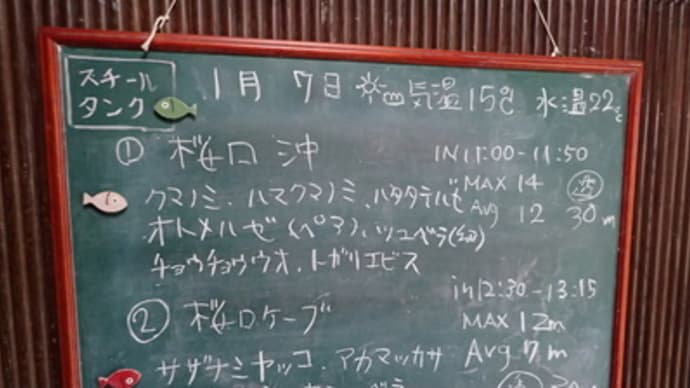 スチール
タンク
1月 7日 気温15℃ 水温22℃
① 桜口 沖 IN 11:00-11:50
クマノミ、ハマクマノミ、ハタタテハゼ MAX 14
オトメハゼ(ペア)、ツユベラ(幼) Avg 12 30m
チョウチョウウオ、トガリエビス
② 桜口ケーブ in 12:30-13:15
MAX 12m
サザナミヤッコ、アカマツカサ Avg 7m